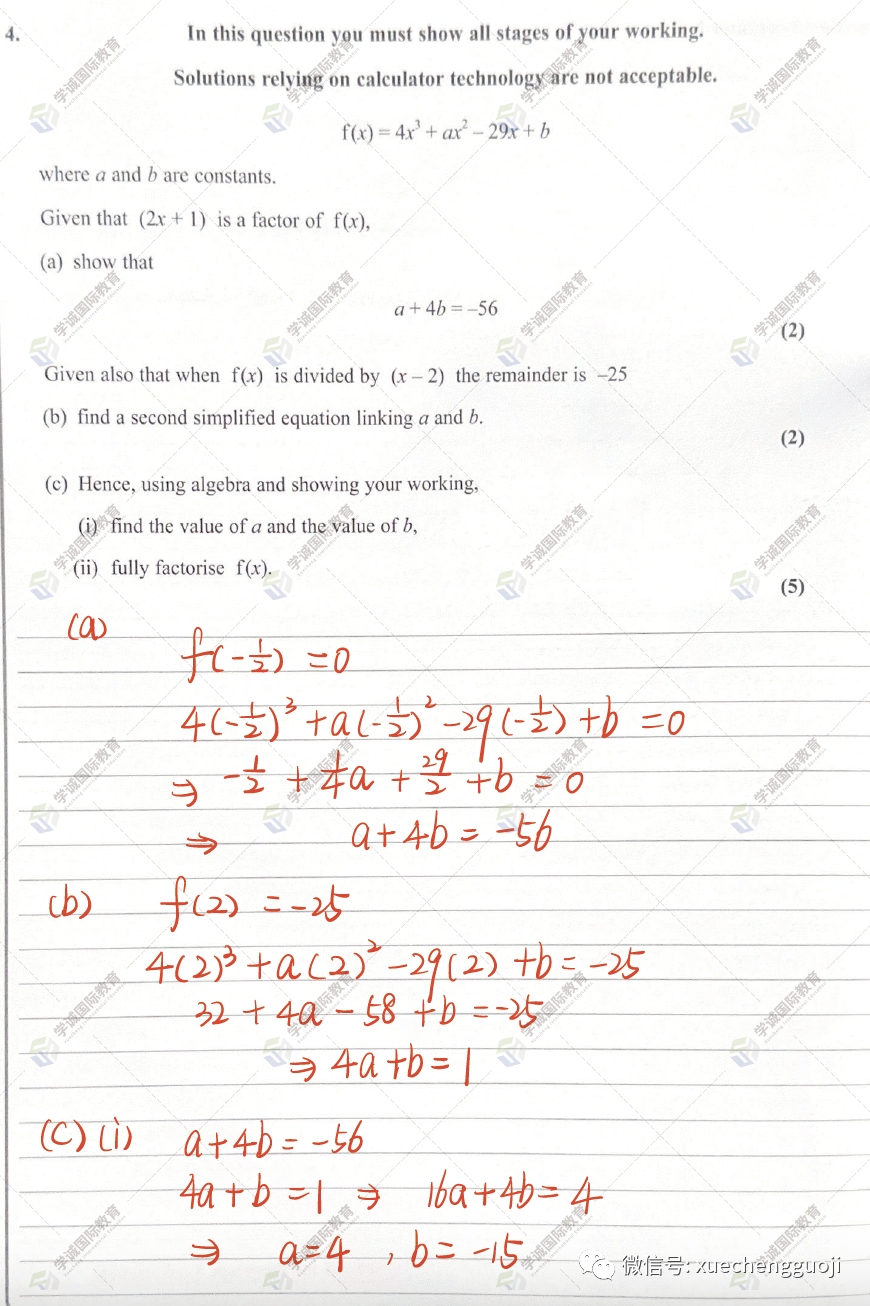 4. In this question you must show all stages of your working.
Solutions relying on calculator technology are not acceptable.
f(x) = 4x³ + ax² – 29x + b
where a and b are constants.
Given that (2x + 1) is a factor of f(x),
(a) show that
a + 4b = –56
(2)
Given also that when f(x) is divided by (x – 2) the remainder is –25
(b) find a second simplified equation linking a and b.
(2)
(c) Hence, using algebra and showing your working,
(i) find the value of a and the value of b,
(ii) fully factorise f(x).
(5)
(a)
f(-1/2) = 0
4(-1/2)³ + a(-1/2)² - 29(-1/2) + b = 0
⇒ -1/2 + 1/4a + 29/2 + b = 0
⇒ a + 4b = -56
(b) f(2) = -25
4(2)³ + a(2)² - 29(2) + b = -25
32 + 4a - 58 + b = -25
⇒ 4a + b = 1
(C) (i) a + 4b = -56
4a + b = 1 ⇒ 16a + 4b = 4
⇒ a = 4 , b = -15
微信号: xuechengguoji
学诚国际教育